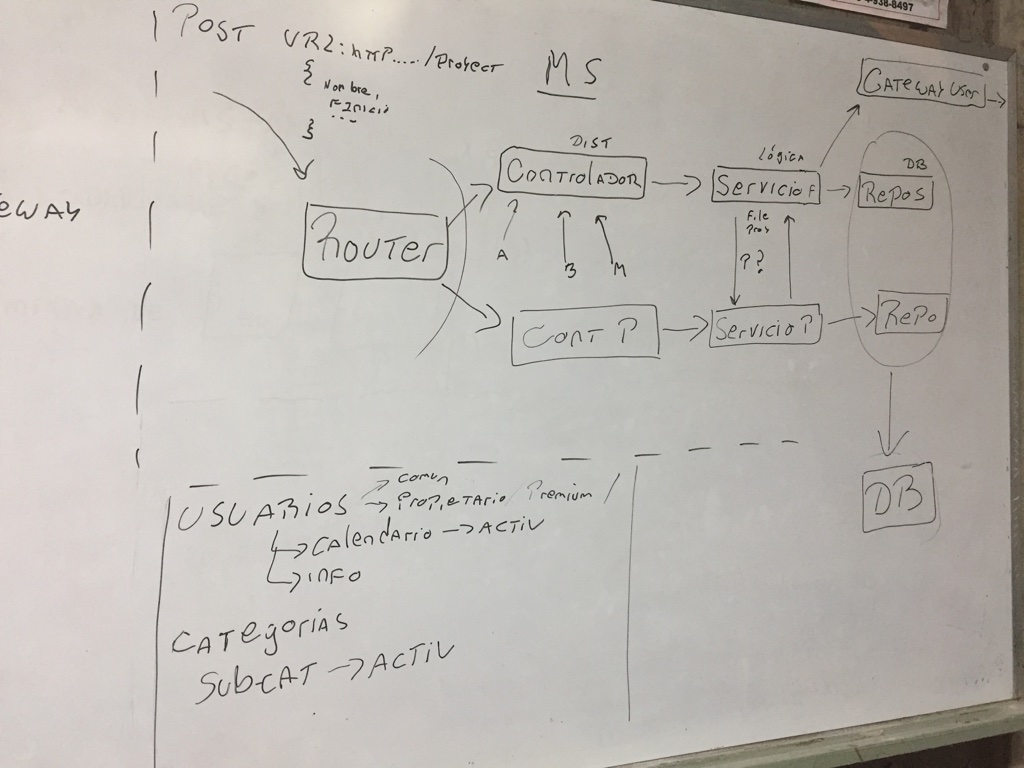 -938-8497
POST URL: http..... /Proyect
{
Nombre,
FInicio
...
}
MS
GATEWAY User
DIST
CONTrolADOR
Lógica
Servicio F
DB
Repos
eWAY
Router
A
B
M
File
Proy
??
CONT P
Servicio P
Repo
DB
USUARIOS
comun
Propietario / Premium /
CAlendARIO → ACTIV
INFO
CATegoríAS
SubCAT → ACTIV